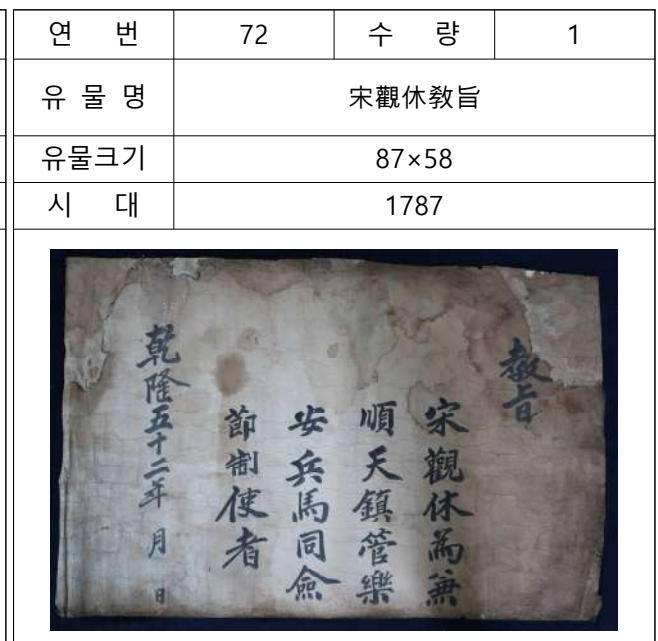 연 번 72 수 량 1
유 물 명 宋觀休敎旨
유물크기 87×58
시 대 1787
敎旨
宋觀休爲兼
順天鎭管樂
安兵馬同僉
節制使者
乾隆五十二年 月 日